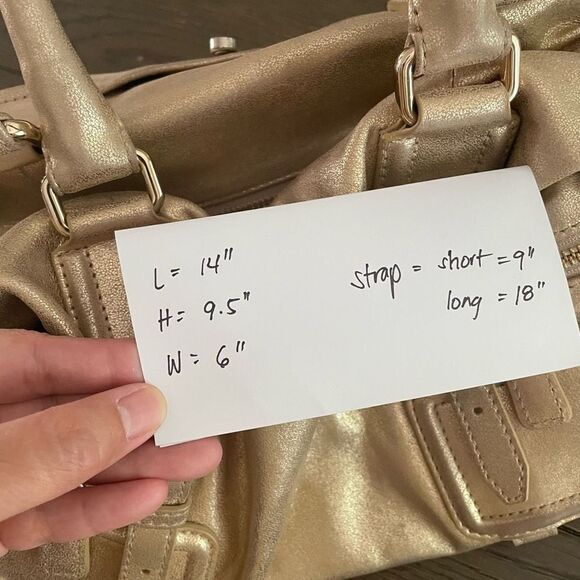 L = 14"
H = 9.5"
W = 6"
strap = short = 9"
long = 18"